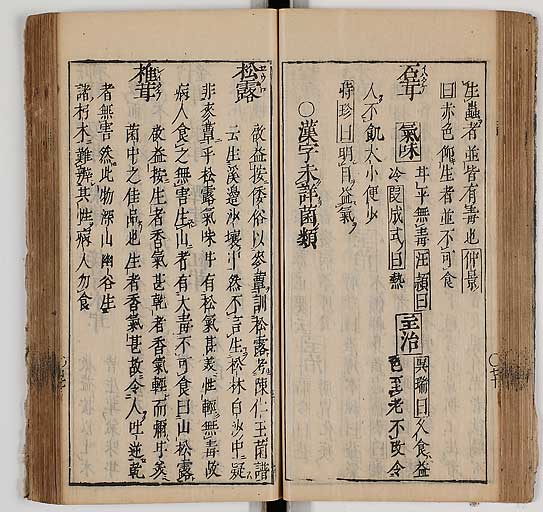 生蟲者並皆有毒也仲景
曰赤色仰生者並不可食
石茸
氣味
甘平無毒汪頴曰
冷段成式曰熱
主治
呉瑞曰久食益
色至老不改令
人不飢大小便少
時珍曰明目益氣
○漢字未詳菌類
松露
啟益按倭俗以麥蕈訓松露者陳仁玉菌譜
云生溪邊沙壤中然不言生松林白沙中疑
非麥蕈乎松露氣味甘有松氣甚美性輕無毒故
病人食之無害生山者有大毒不可食曰山松露
椎茸
啟益按生者香氣甚乾者香氣輕而甘美
菌中之佳品也生者香氣甚故令人吐逆乾
者無害然此物深山幽谷生
諸朽木難辨其性病人勿食